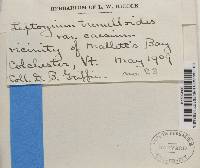 HERBARIUM OF L. W. RIDDLE
Leptogium tremelloides
var. caesium
vicinity of Mallett's Bay
Colchester, Vt. May 1909
Coll. D. B. Griffin. no. 23